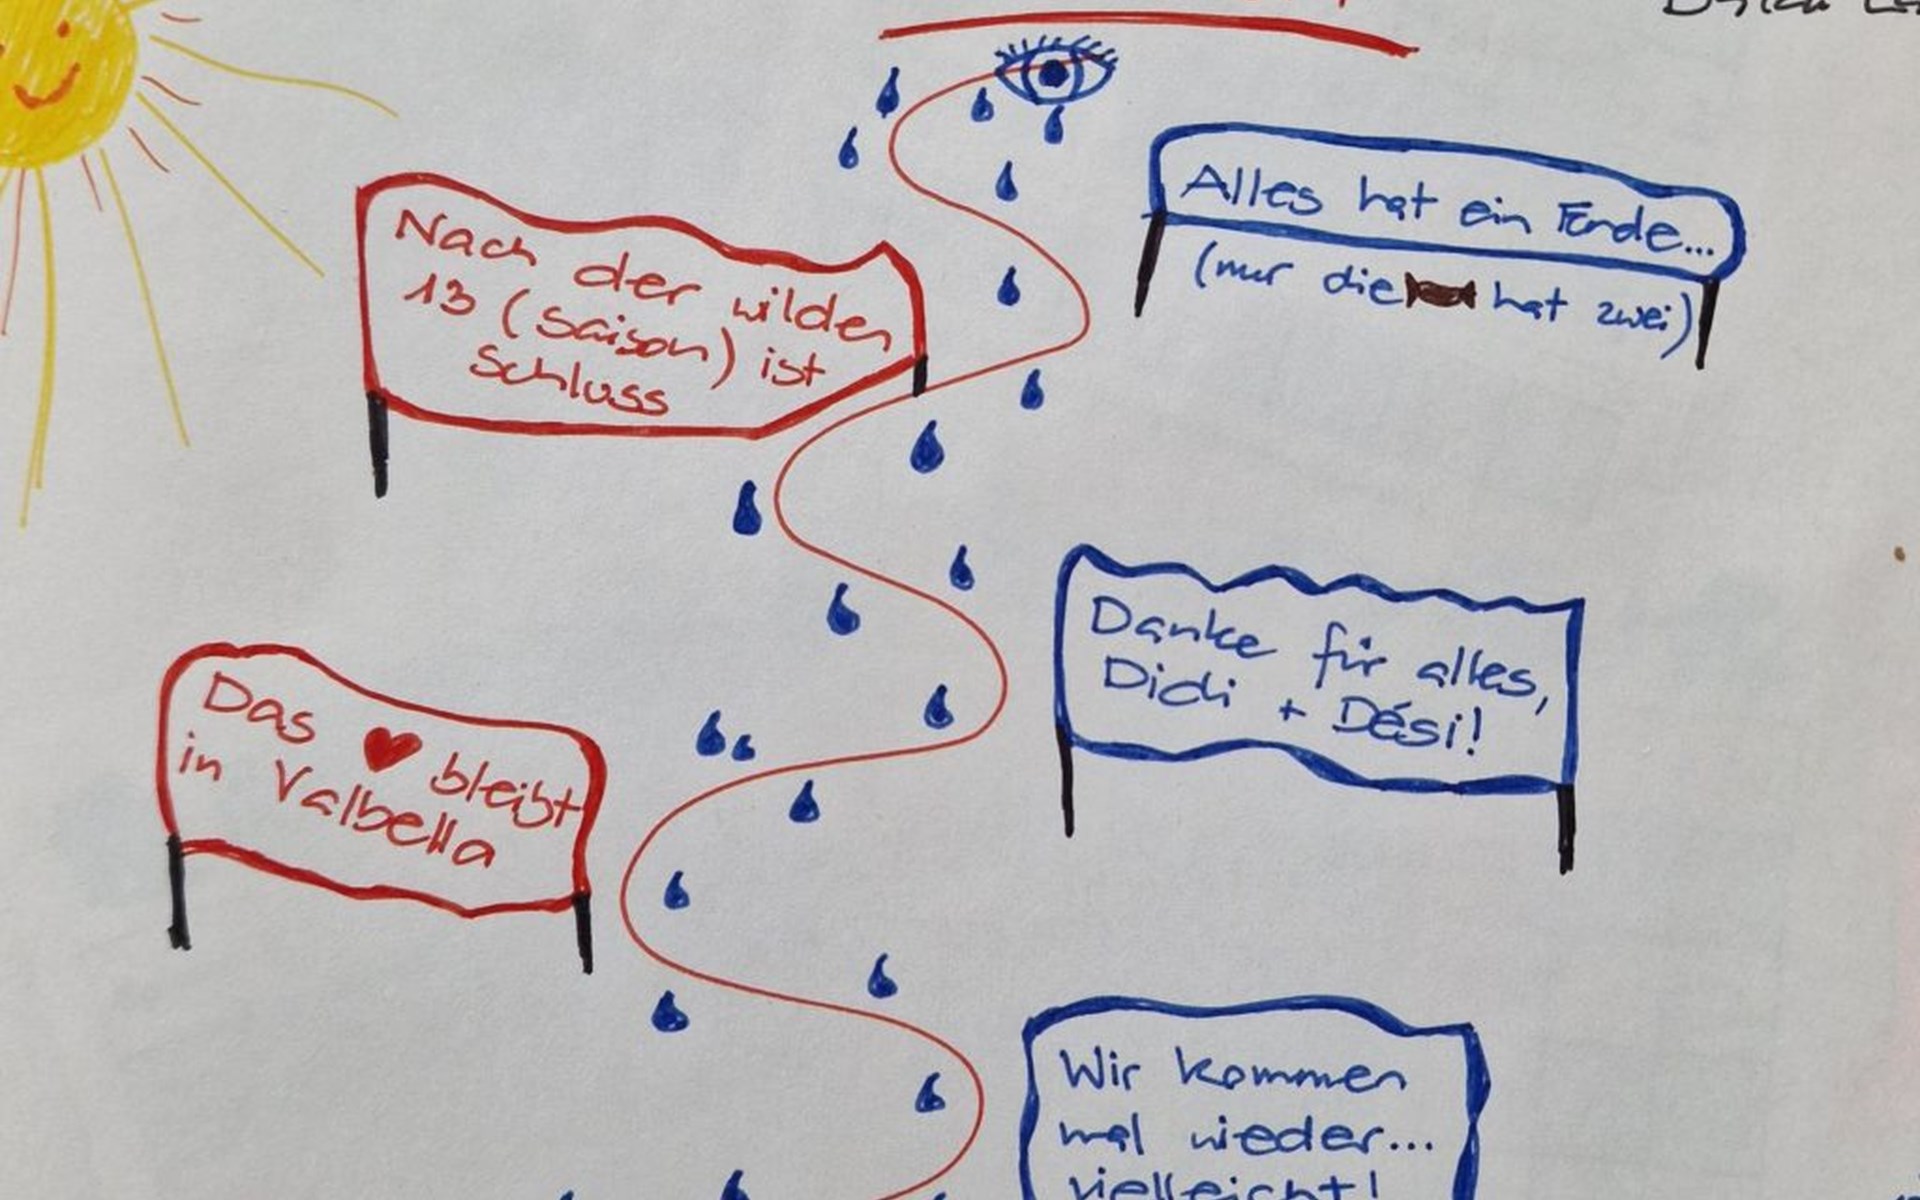 Alles hat ein Ende...
(nur die hat zwei)
Nach der wilden
13 (Saison) ist
Schluss
Danke für alles,
Didi + Dési!
Das bleibt
in Valbella
Wir kommen
mal wieder...
vielleicht!